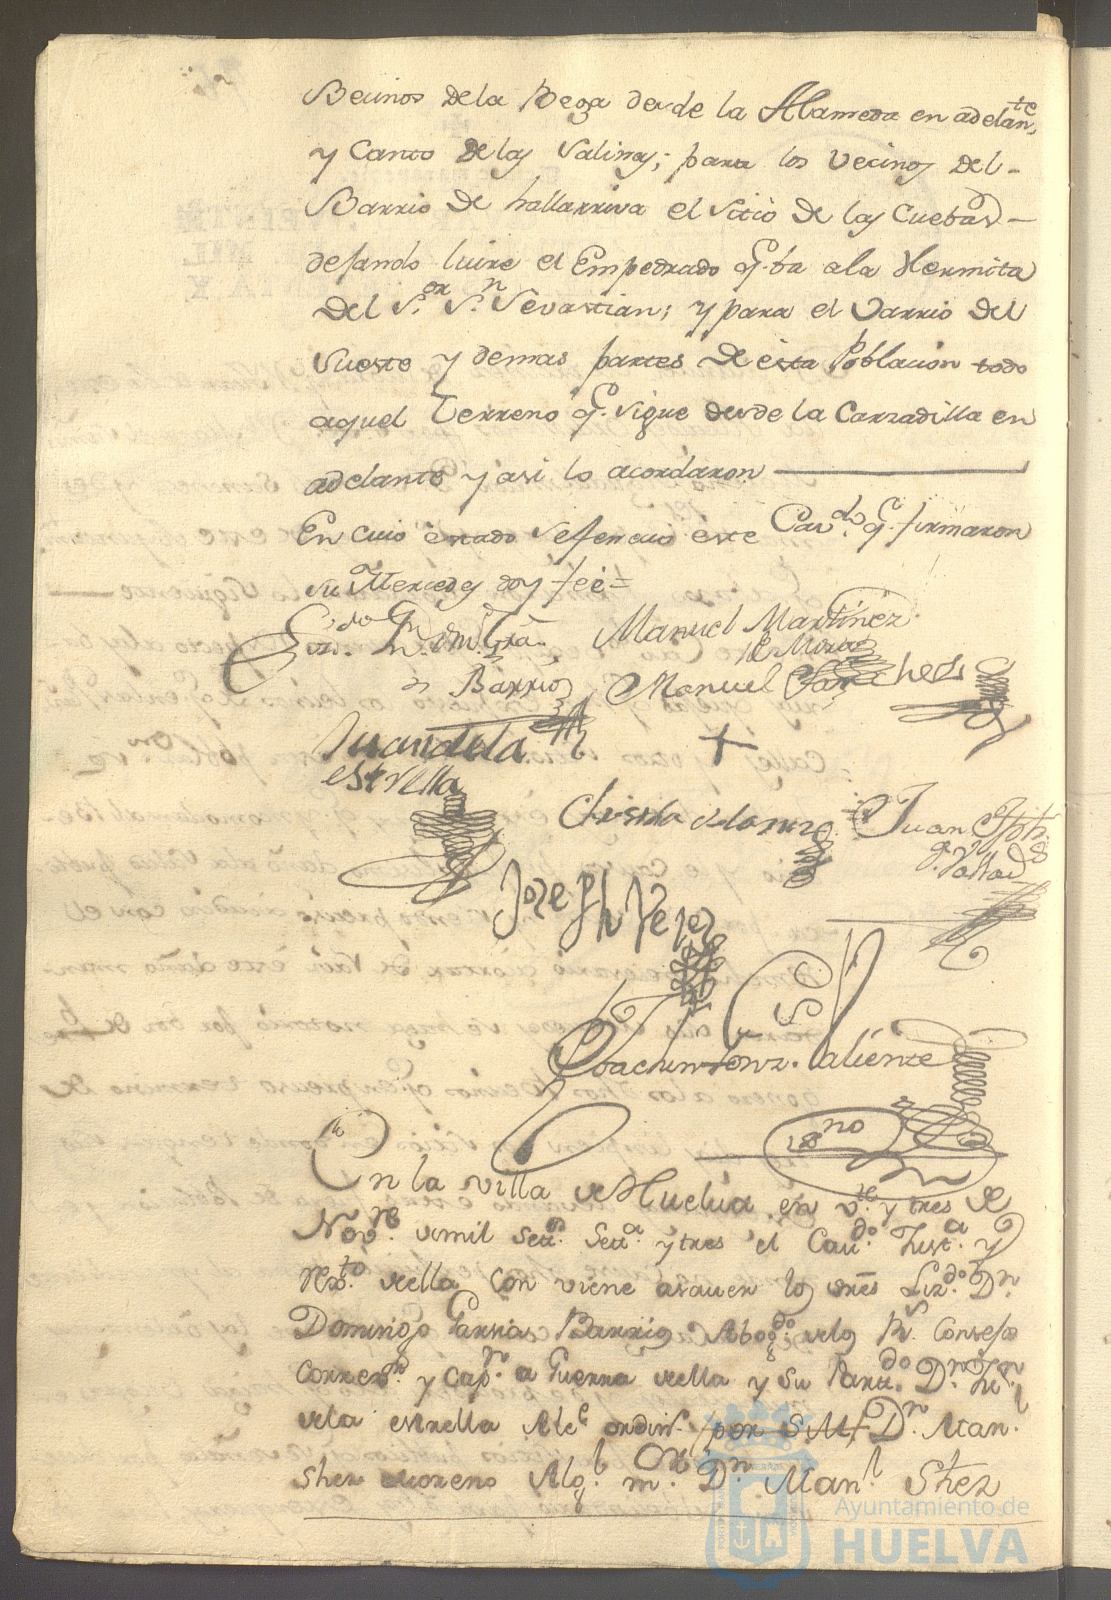 Becinos de la Bega desde la Alameda en adelante,
y Canto de las Salinas; para los Vecinos del-
Barrio de hallarriva el sitio de las Cuebas-
dejando luire el Empedrado q.e ba a la Hermita
del S.or S.n Sevastian; y para el Varrio del
y demas partes de esta Poblacion todo
aquel Terreno q.e sigue desde la Carzadilla en
adelante y asi lo acordaron
En cuio estado se fenecio este Cav.do q.e firmaron
su Mercedes doy fee=
Liz.do D.n Dom.o
Manuel Martinez
Barrios
Manuel Sanchez
Juan de la
estrella
+
Juan Jph
Joseph Perez
Joachin Valiente
ss.no
En la villa de Huelva en v.te y tres de
Nov.re de mil set.s set.a y tres el Cav.do Just.a y
Rex.to de ella conviene a saver los sres Liz.do D.n
Domingo Garsias Barrios Abog.do de los R.s Consejos
Correx.or y Cap.n a Guerra de ella y su Part.do D.n Ju.n
de la estrella Alc.e ordin.o por S.M. D.n Man.l
Shez Moreno Alg.l m.or D.n Man.l Shez
Ayuntamiento de
HUELVA